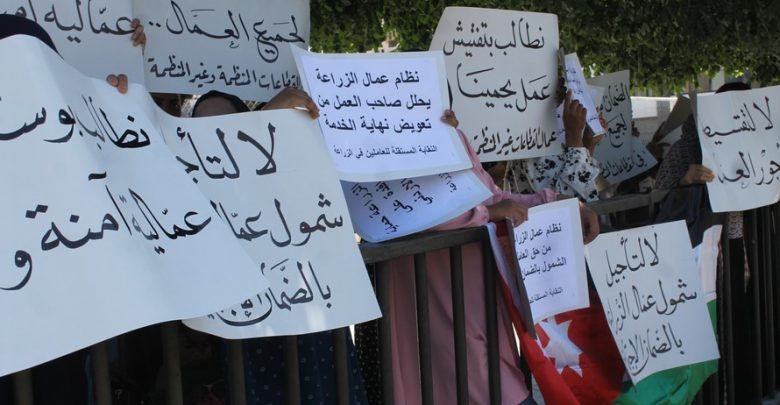 عمالية آمنة
لجميع العمّال..
القطاعات المنظمة وغير المنظمة
نطالب بتفتيش
عمل يحمينا
عمال القطاعات غير المنظمة
الضمان
لجميع
لا لتقسيط
أجور العمال
نظام عمال الزراعة
يحلل صاحب العمل من
تعويض نهاية الخدمة
النقابة المستقلة للعاملين في الزراعة
نطالب بوسائل
عمالية آمنة و
لا لتأجيل
شمول عمال
بالضمان
نظام عمال الزراعة
من حق العمال
الشمول بالضمان
النقابة المستقلة
لا لتأجيل
شمول عمال الزراعة
بالضمان الاجتماعي